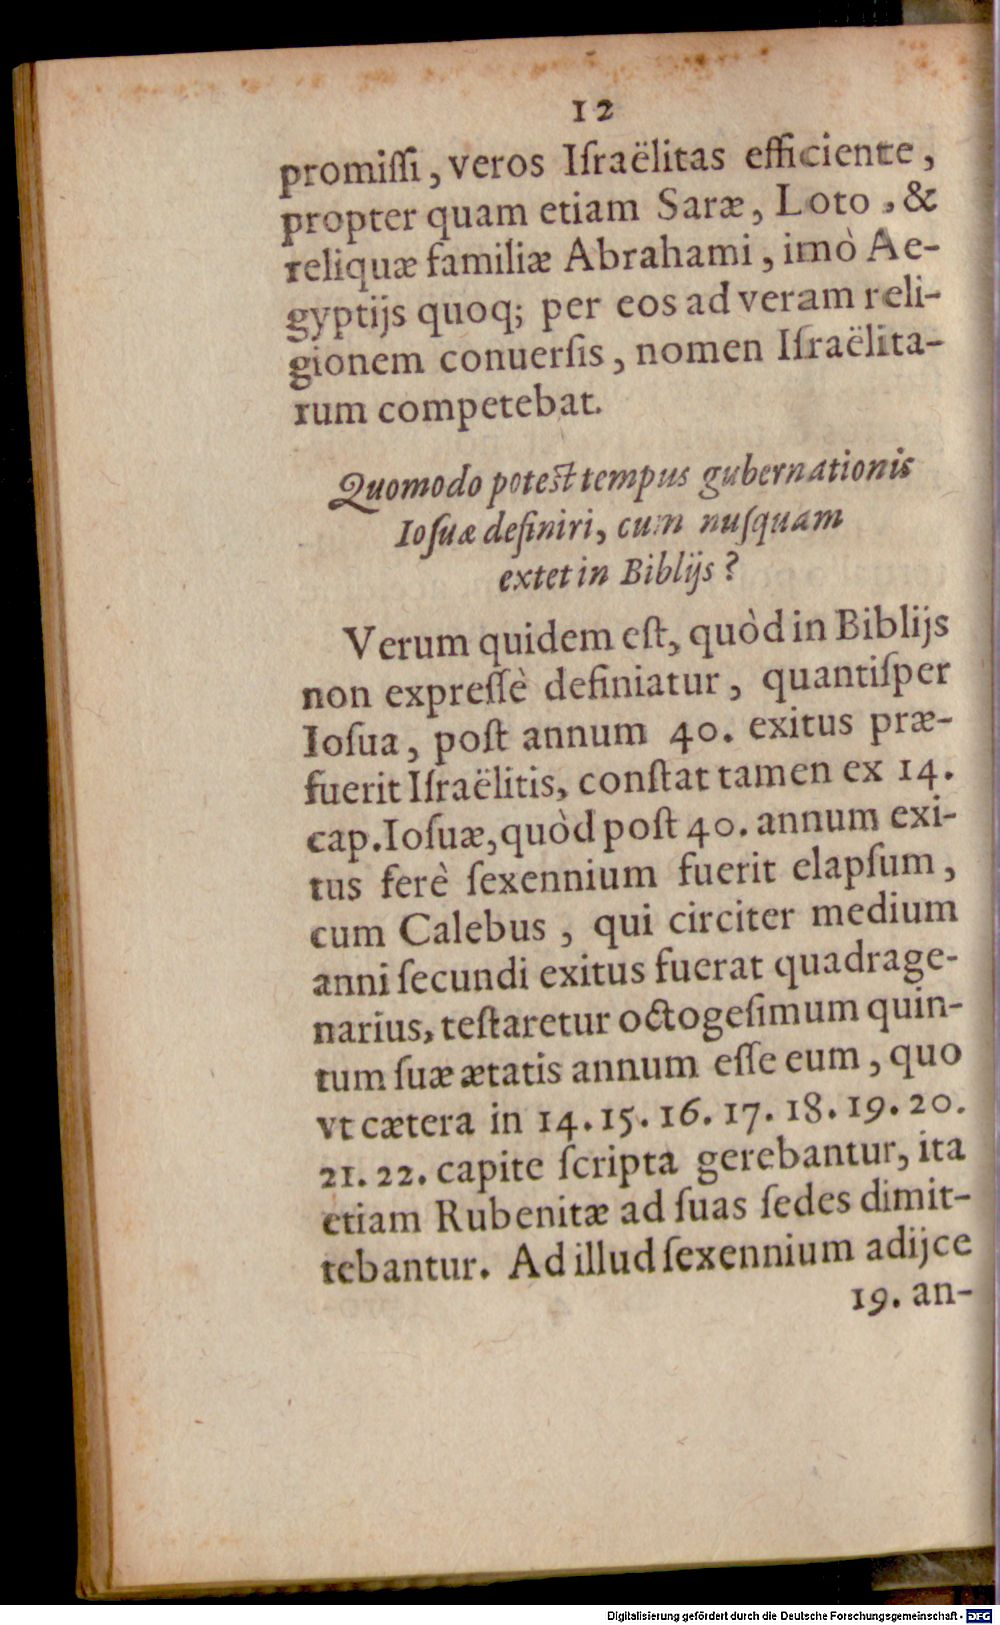 12
promiſſi, veros Iſraëlitas efficiente,
propter quam etiam Saræ, Loto, &
reliquæ familiæ Abrahami, imò Ae-
gyptijs quoq; per eos ad veram reli-
gionem conuerſis, nomen Iſraëlita-
rum competebat.
Quomodo poteſt tempus gubernationis
Ioſuæ definiri, cum nuſquam
extet in Biblijs?
Verum quidem eſt, quòd in Biblijs
non expreſſè definiatur, quantiſper
Ioſua, poſt annum 40. exitus præ-
fuerit Iſraëlitis, conſtat tamen ex 14.
cap. Ioſuæ, quòd poſt 40. annum exi-
tus ferè ſexennium fuerit elapſum,
cum Calebus, qui circiter medium
anni ſecundi exitus fuerat quadrage-
narius, teſtaretur octogeſimum quin-
tum ſuæ ætatis annum eſſe eum, quo
vt cætera in 14. 15. 16. 17. 18. 19. 20.
21. 22. capite ſcripta gerebantur, ita
etiam Rubenitæ ad ſuas ſedes dimit-
tebantur. Ad illud ſexennium adijce
19. an-
Digitalisierung gefördert durch die Deutsche Forschungsgemeinschaft - DFG